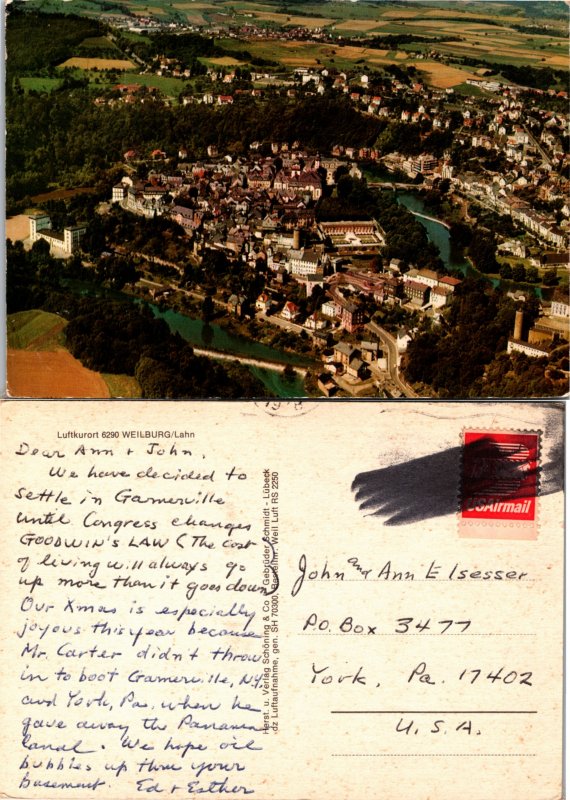 Luftkurort 6290 WEILBURG/Lahn
Dear Ann + John,
We have decided to
settle in Gamerville
until Congress changes
GOODWIN'S LAW (The cost
of living will always go
up more than it goes down)
Our Xmas is especially
joyous this year because
Mr. Carter didn't throw
in to boot Gamerville, NY
and York, Pa. when he
gave away the Panama
Canal. We hope oil
bubbles up thru your
basement. Ed + Esther
Herst. u. Verlag Schöning & Co + Gebrüder Schmidt - Lübeck
dz Luftaufnahme, gen. SH 70300, Bestellnr. Weil Luft RS 2250
USAirmail
John and Ann E Isesser
P.O. Box 3477
York, Pa. 17402
U.S.A.